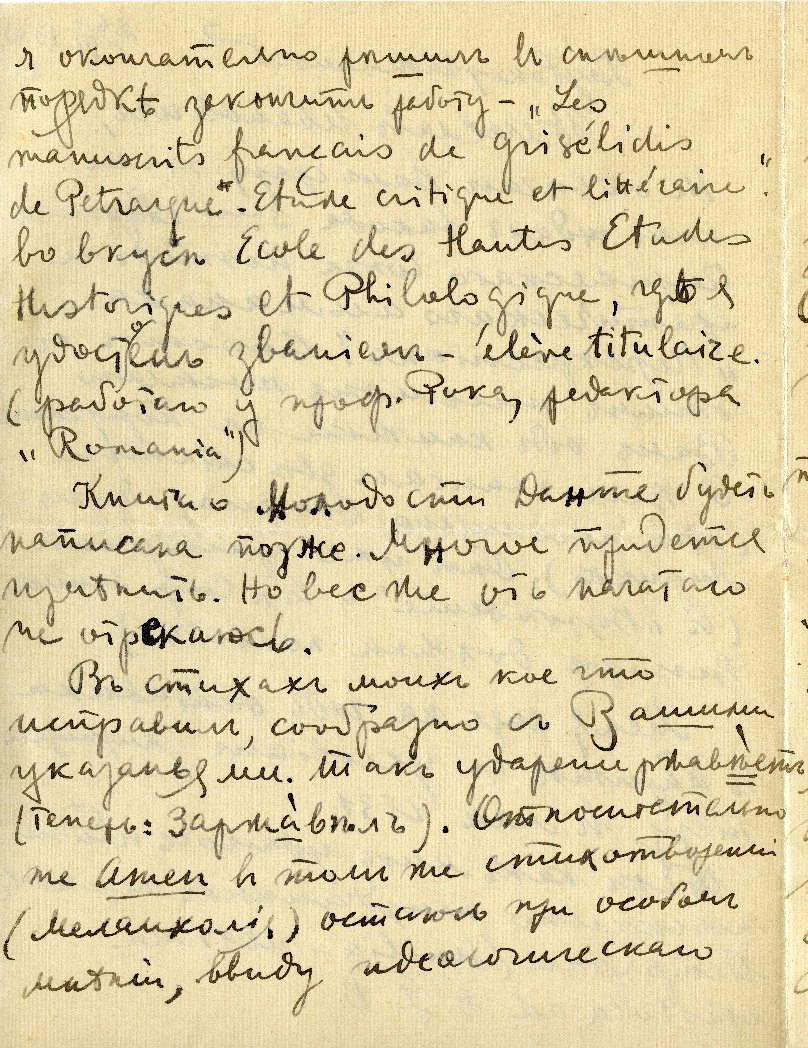 я окончательно решилъ въ спѣшномъ
порядкѣ закончить работу – „Les
manuscrits français de Grisélidis
de Petrarque". Etude critique et littéraire".
во вкусѣ Ecole des Hautes Etudes
Historiques et Philologique, гдѣ я
удостоенъ званіемъ – élève titulaire.
(работаю у проф. Рока, редактора
„Romania")
Книга о Молодости Данте будетъ
написана позже. Многое придется
измѣнить. Но все же отъ начатаго
не отрекаюсь.
Въ стихахъ моихъ кое что
исправилъ, сообразно съ Вашими
указаньями. Такъ ударенье ржавѣетъ
(теперь: заржа̀вѣлъ). Относительно
же Атеп въ томъ же стихотвореніи
(Меланхолія) остаюсь при особомъ
мнѣніи, ввиду идеологическаго